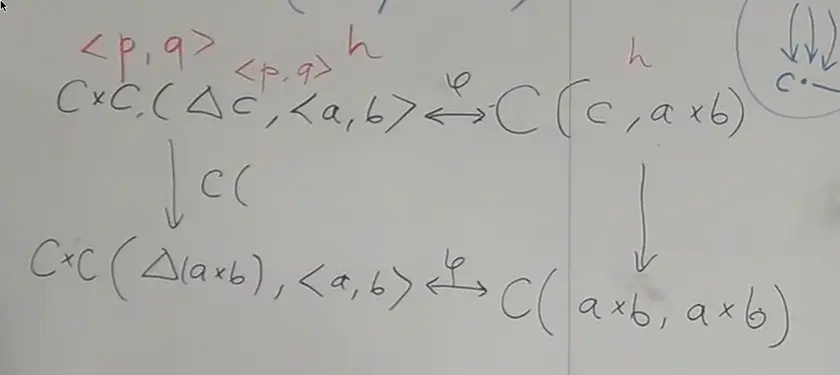 <p,q> <p,q> h h
C×C(Δc,<a,b> ⟷ C(c,a×b) C
φ
C(
C×C(Δ(a×b),<a,b> ⟷ C(a×b,a×b)
φ